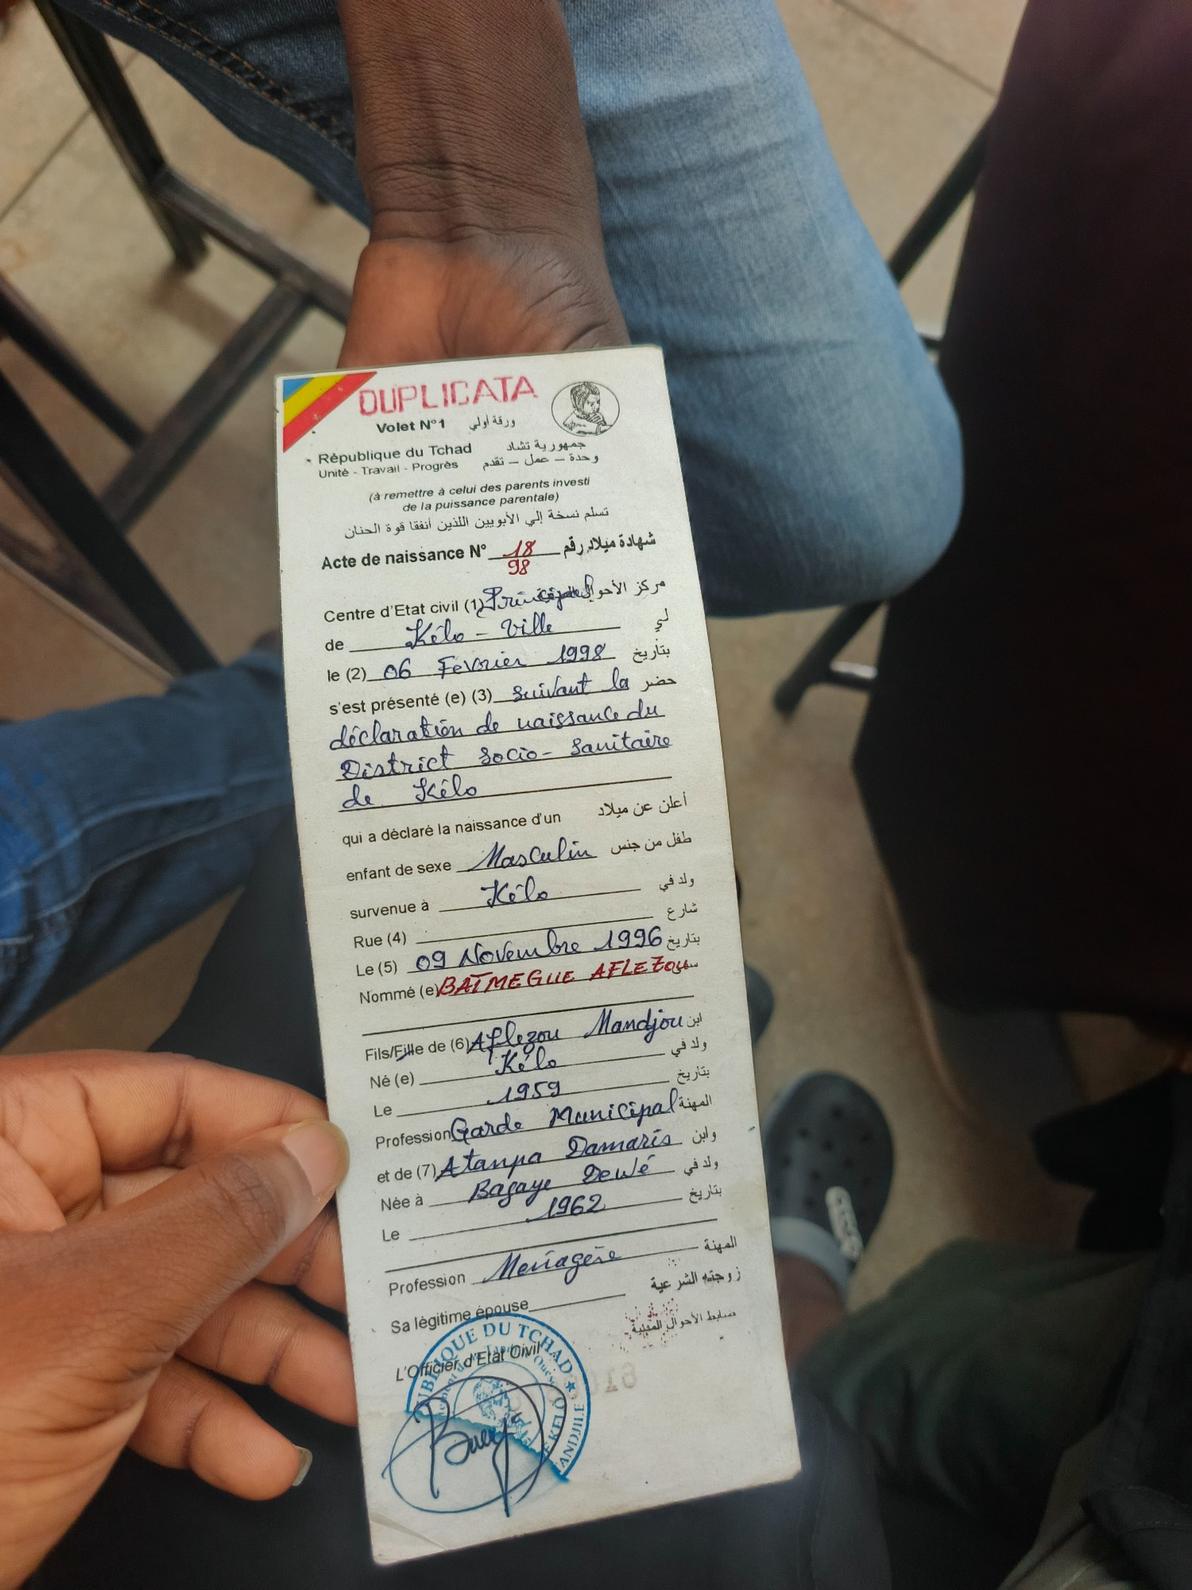 DUPLICATA
Volet N°1 ورقة أولي
République du Tchad جمهورية تشاد
Unité - Travail - Progrès وحدة – عمل – تقدم
(à remettre à celui des parents investi
de la puissance parentale)
تسلم نسخة إلي الأبويين اللذين أنفقا قوة الحنان
Acte de naissance N° 18 شهادة ميلاد رقم
98
Centre d'Etat civil (1) Principal مركز الأحوال
de Kélo - Ville لي
le (2) 06 Février 1998 بتاريخ
s'est présenté (e) (3) suivant la حضر
déclaration de naissance du
District Socio - Sanitaire
de Kélo
qui a déclaré la naissance d'un أعلن عن ميلاد
enfant de sexe Masculin طفل من جنس
survenue à Kélo ولد في
Rue (4) شارع
Le (5) 09 Novembre 1996 بتاريخ
Nommé (e) BATMEGUE AFLEZOU
Fils/Fille de (6) Aflezou Mandjou ابن
Né (e) Kélo ولد في
Le 1959 بتاريخ
Profession Garde Municipal المهنة
et de (7) Atanpa Damaris وابن
Née à Bagaye Dewé ولد في
Le 1962 بتاريخ
Profession Menagère المهنة
Sa légitime épouse زوجته الشرعية
L'Officier d'Etat Civil ضابط الأحوال المدنية
UBLIQUE DU TCHAD
KELO
ANDJILE